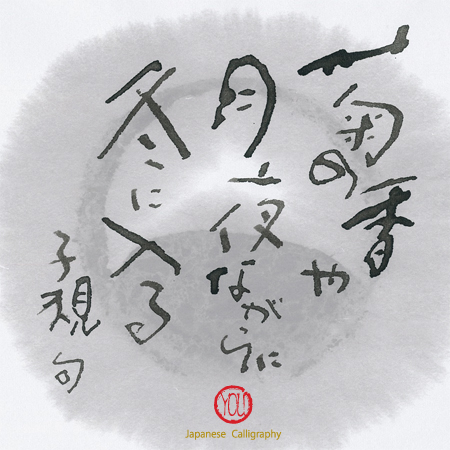 菊の香や
月夜ながらに
冬に入る
子規句
YOU
Japanese Calligraphy